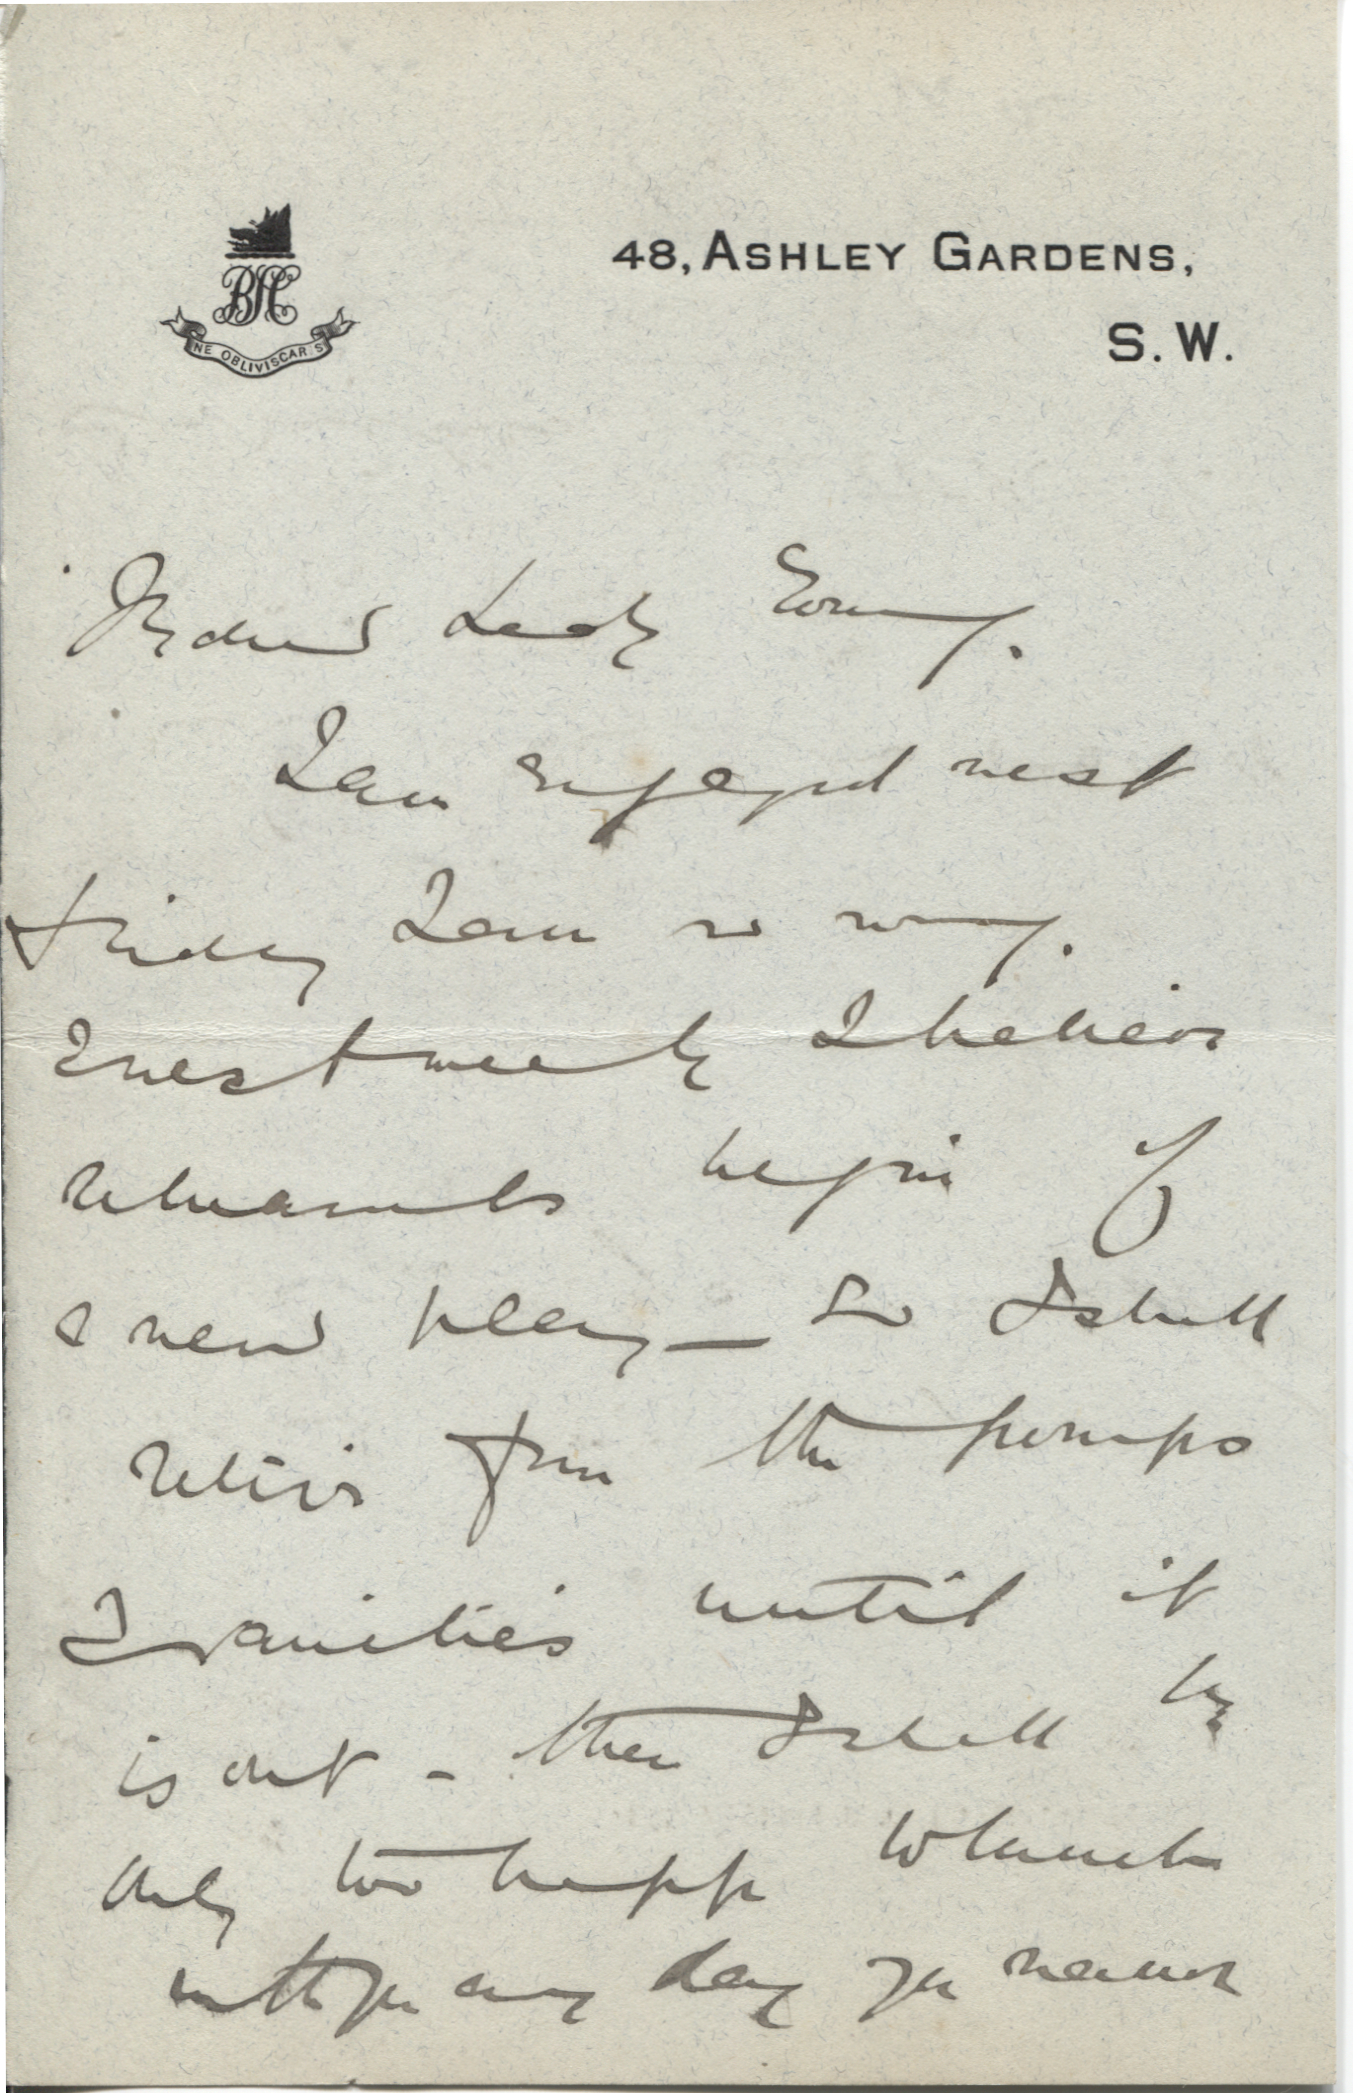 48, ASHLEY GARDENS,
S. W.
NE OBLIVISCARIS
My dear Lady
I am engaged next
Friday I am so sorry.
& next week I believe
rehearsals begin of
a new play — so I shall
retire from the pomps
& vanities until it
is out - then I shall be
only too happy to lunch
with you any day you name